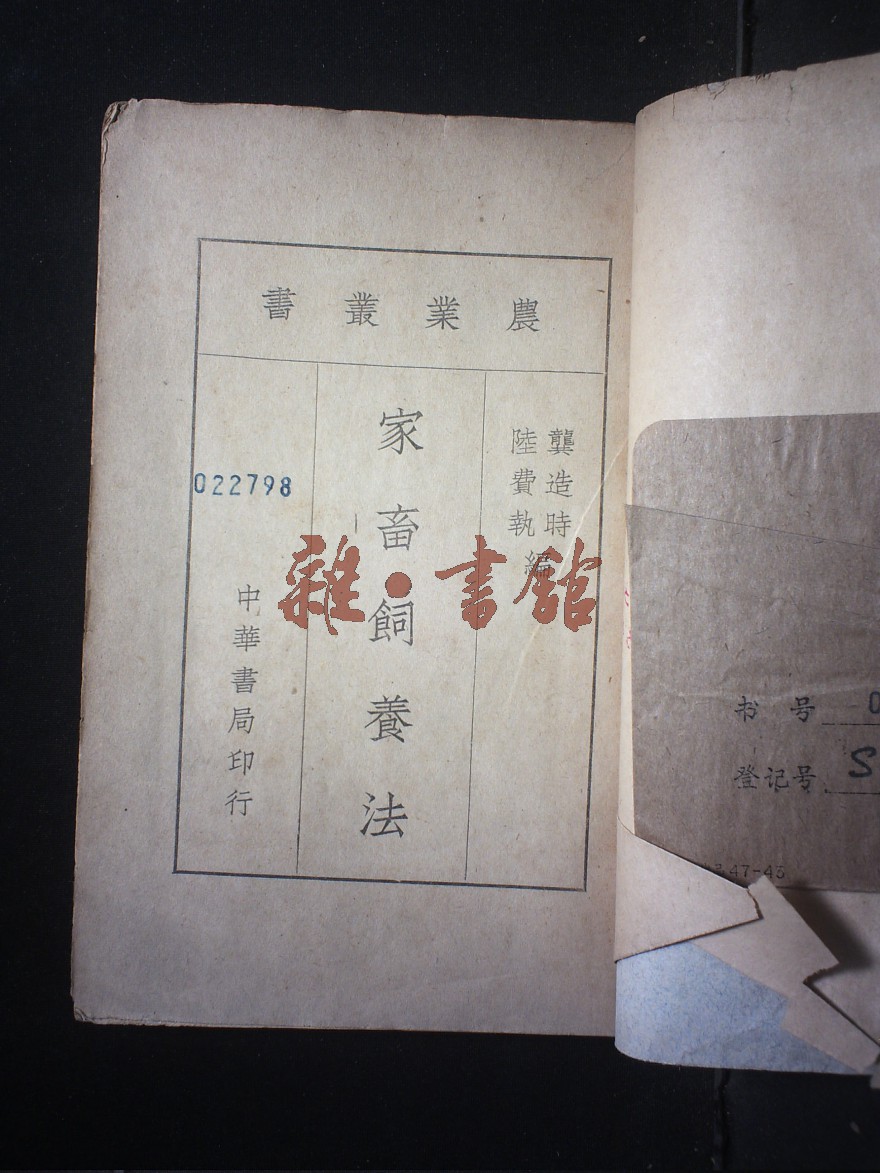 農業叢書
龔造時
陸費執
編
家畜飼養法
中華書局印行
022798
雜·書館
书号 0
登记号 S
47-43